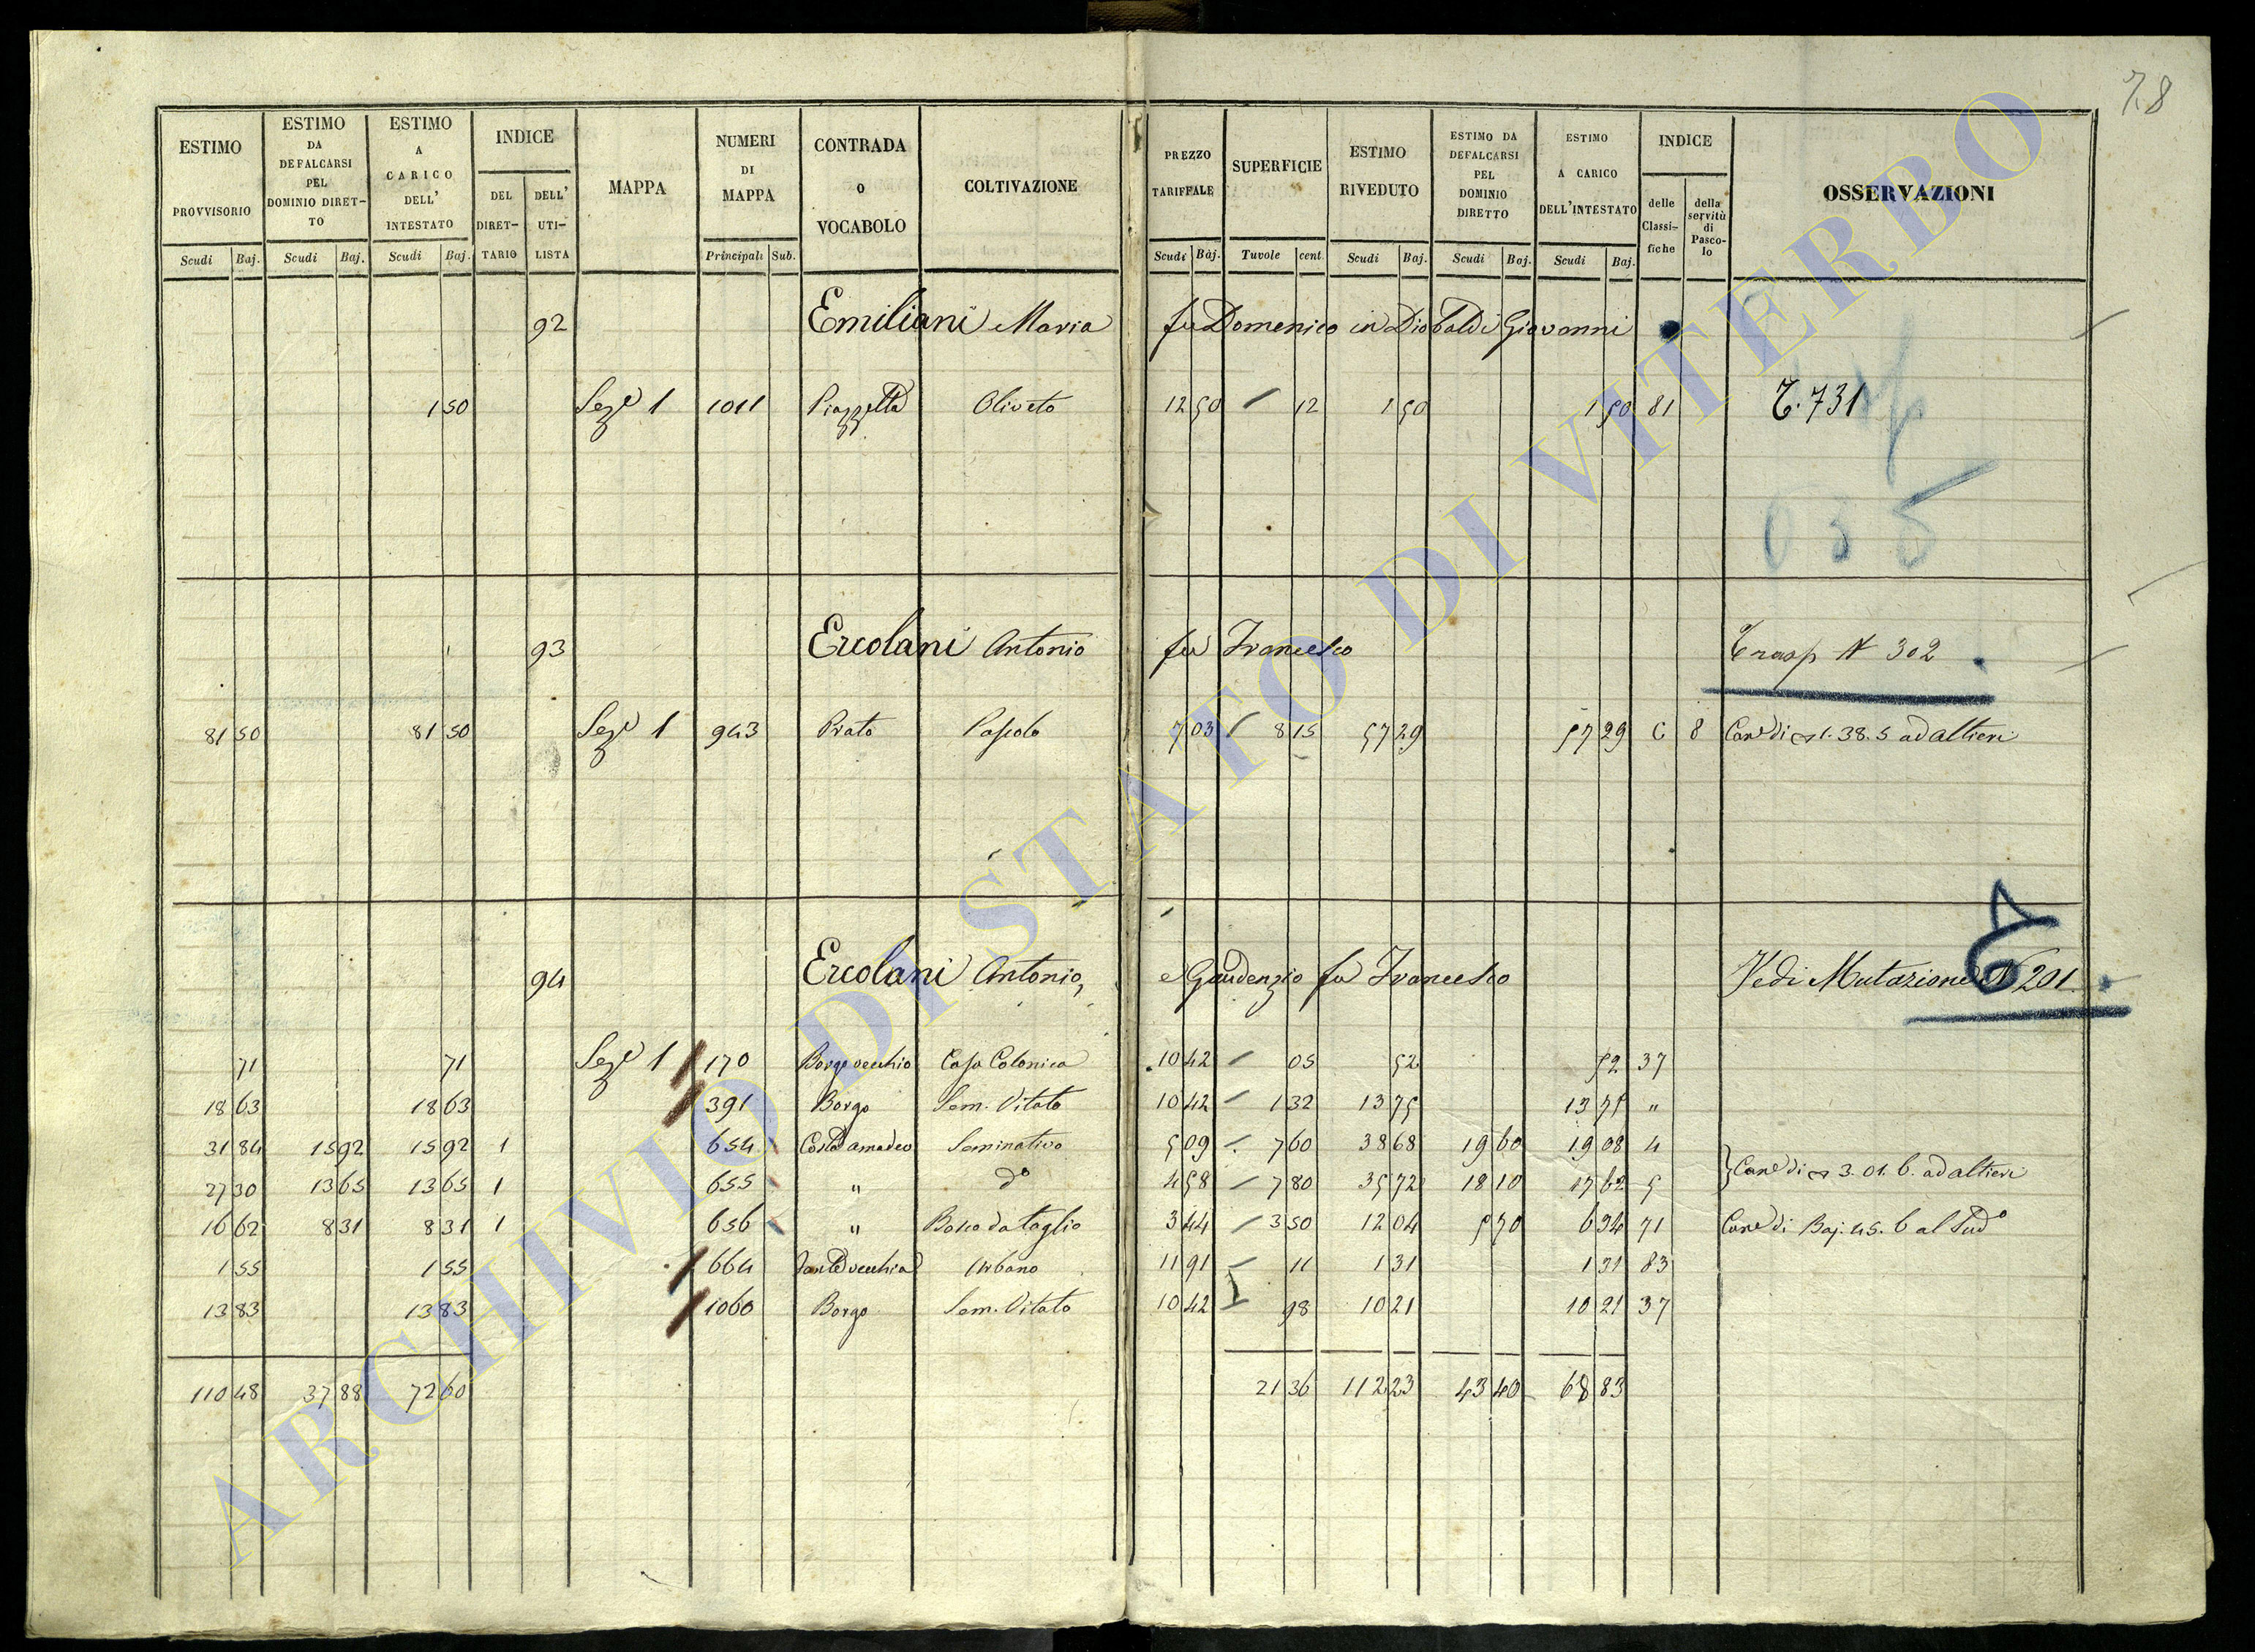 78
ESTIMO PROVVISORIO Scudi Baj.
ESTIMO DA DEFALCARSI PEL DOMINIO DIRETTO Scudi Baj.
ESTIMO A CARICO DELL' INTESTATO Scudi Baj.
INDICE DEL DIRETTARIO DELL' UTILISTA
MAPPA
NUMERI DI MAPPA Principali Sub.
CONTRADA O VOCABOLO
COLTIVAZIONE
PREZZO TARIFFALE Scudi Baj.
SUPERFICIE Tavole cent.
ESTIMO RIVEDUTO Scudi Baj.
ESTIMO DA DEFALCARSI PEL DOMINIO DIRETTO Scudi Baj.
ESTIMO A CARICO DELL'INTESTATO Scudi Baj.
INDICE delle Classifiche della servitù di Pascolo
OSSERVAZIONI
92 Emiliani Maria fu Domenico in Diobaldi Giovanni
1 50 Seze 1 1011 Piazzetta Oliveto 12 50 12 1 50 1 50 81 T. 731
93 Ercolani Antonio fu Francesco Trasp N 302
81 50 81 50 Seze 1 943 Prato Pascolo 7 03 8 15 57 29 57 29 C 8 Cane di 1. 38. 5 ad altieri
94 Ercolani Antonio, e Gaudenzio fu Francesco Vedi Mutazione N 201.
71 71 Seze 1 170 Borgo vecchio Casa Colonica 10 42 05 52 52 37
18 63 18 63 391 Borgo Sem. Vitato 10 42 1 32 13 75 13 75 "
31 84 15 92 15 92 1 654 Costa amadeo Seminativo 5 09 7 60 38 68 19 60 19 08 4
27 30 13 65 13 65 1 655 " do 4 58 7 80 35 72 18 10 17 62 5 Cane di 3. 01. 6. ad altieri
16 62 8 31 8 31 1 656 " Bosco da taglio 3 44 3 50 12 04 5 70 6 34 71 Cane di Baj. 45. 6 al Sudo
1 55 1 55 664 vecchia Urbano 11 91 11 1 31 1 31 83
13 83 13 83 1060 Borgo Sem. Vitato 10 42 98 10 21 10 21 37
110 48 37 88 72 60 21 36 112 23 43 40 68 83
ARCHIVIO DI STATO DI VITERBO